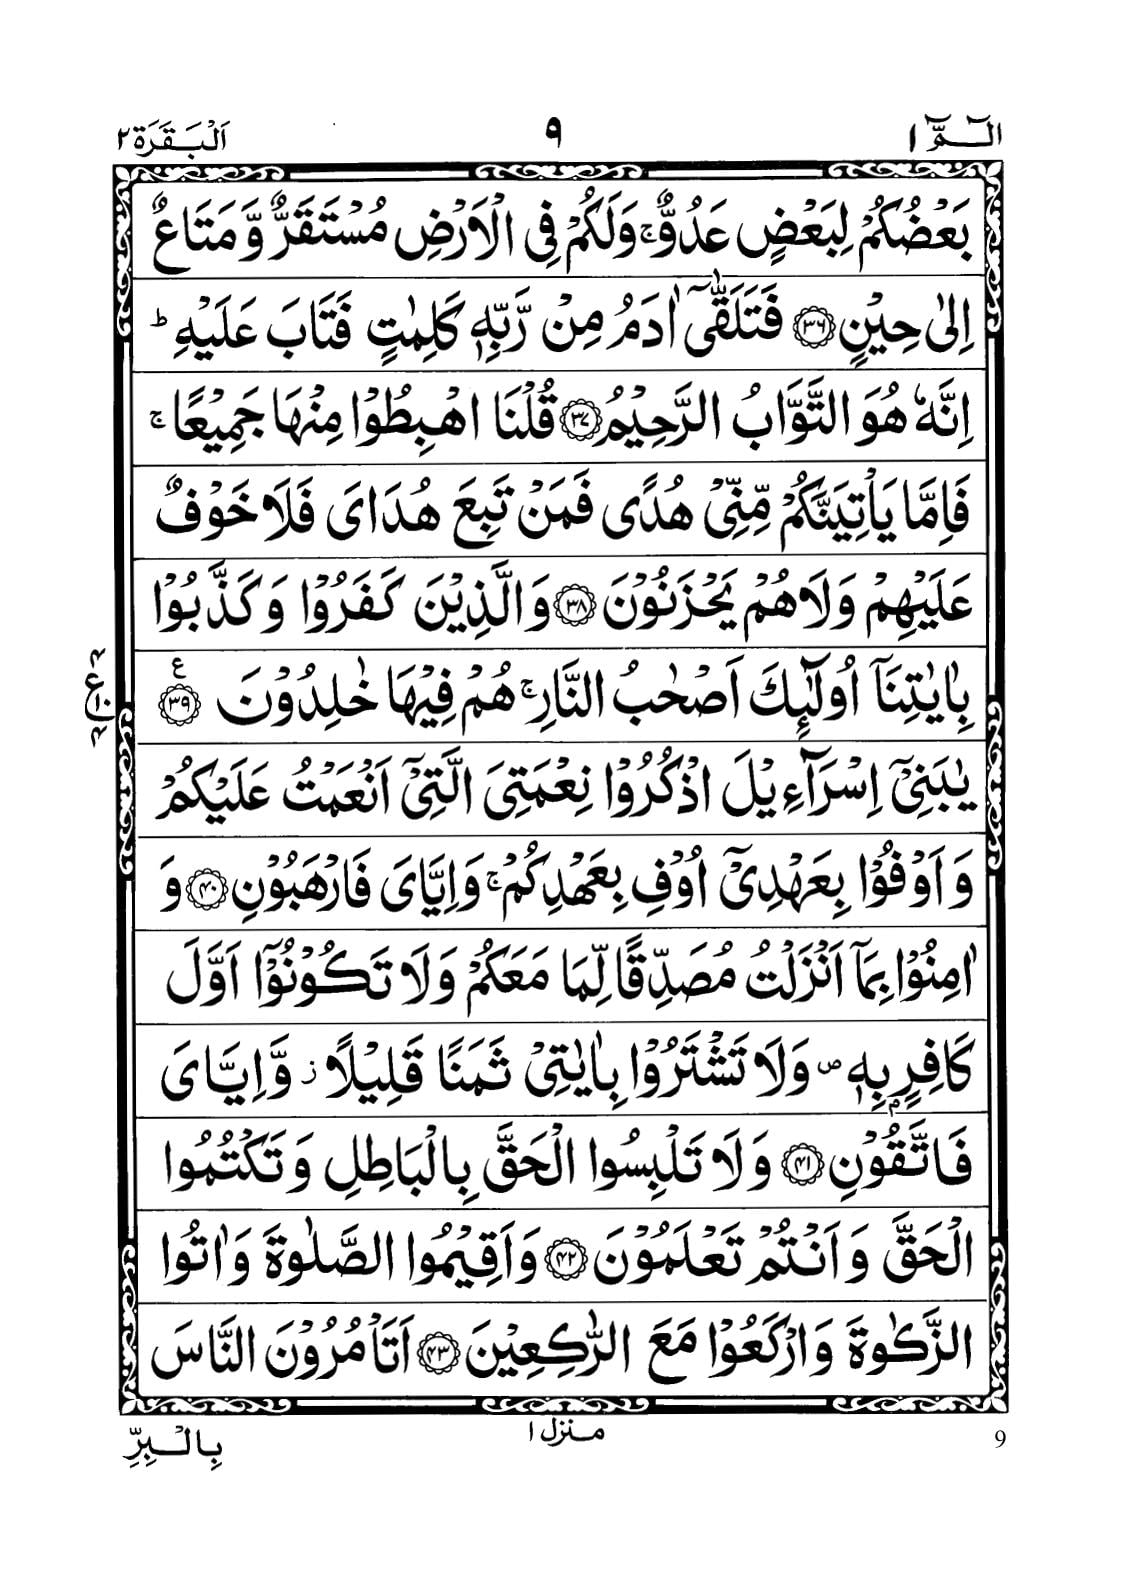 الٓمّٓ ١ ٩ اَلْبَقَرَة ٢
بَعْضُكُمْ لِبَعْضٍ عَدُوٌّ ۚ وَلَكُمْ فِی الْاَرْضِ مُسْتَقَرٌّ وَّ مَتَاعٌ
اِلٰى حِیْنٍ ۝٣٦ فَتَلَقّٰۤی اٰدَمُ مِنْ رَّبِّهٖ كَلِمٰتٍ فَتَابَ عَلَیْهِ ؕ
اِنَّهٗ هُوَ التَّوَّابُ الرَّحِیْمُ ۝٣٧ قُلْنَا اهْبِطُوْا مِنْهَا جَمِیْعًا ۚ
فَاِمَّا یَاْتِیَنَّكُمْ مِّنِّیْ هُدًی فَمَنْ تَبِعَ هُدَایَ فَلَا خَوْفٌ
عَلَیْهِمْ وَلَا هُمْ یَحْزَنُوْنَ ۝٣٨ وَالَّذِیْنَ كَفَرُوْا وَ كَذَّبُوْا
بِاٰیٰتِنَاۤ اُولٰٓىِٕكَ اَصْحٰبُ النَّارِ ۚ هُمْ فِیْهَا خٰلِدُوْنَ ۝٣٩ ع
یٰبَنِیْۤ اِسْرَآءِیْلَ اذْكُرُوْا نِعْمَتِیَ الَّتِیْۤ اَنْعَمْتُ عَلَیْكُمْ
وَ اَوْفُوْا بِعَهْدِیْۤ اُوْفِ بِعَهْدِكُمْ ۚ وَاِیَّایَ فَارْهَبُوْنِ ۝٤٠ وَ
اٰمِنُوْا بِمَاۤ اَنْزَلْتُ مُصَدِّقًا لِّمَا مَعَكُمْ وَلَا تَكُوْنُوْۤا اَوَّلَ
كَافِرٍۭ بِهٖ ۪ وَلَا تَشْتَرُوْا بِاٰیٰتِیْ ثَمَنًا قَلِیْلًا ؗ وَّ اِیَّایَ
فَاتَّقُوْنِ ۝٤١ وَلَا تَلْبِسُوا الْحَقَّ بِالْبَاطِلِ وَ تَكْتُمُوا
الْحَقَّ وَ اَنْتُمْ تَعْلَمُوْنَ ۝٤٢ وَاَقِیْمُوا الصَّلٰوةَ وَ اٰتُوا
الزَّكٰوةَ وَ ارْكَعُوْا مَعَ الرّٰكِعِیْنَ ۝٤٣ اَتَاْمُرُوْنَ النَّاسَ
منزل ١
بِالْبِرِّ
9